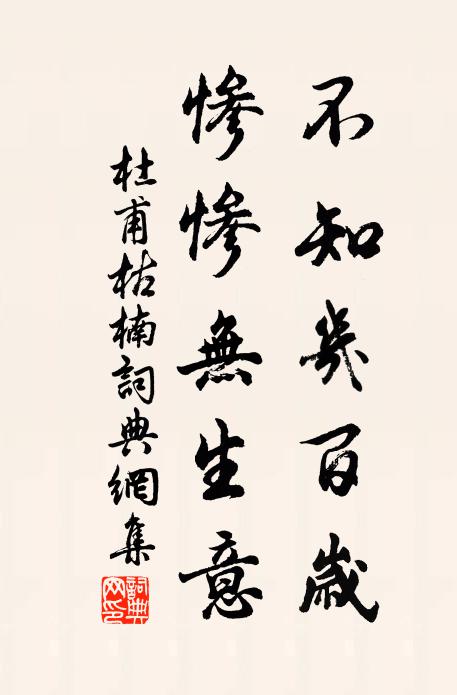 不知幾百歲
慘慘無生意
杜甫枯楠詞典網集
詞典网印